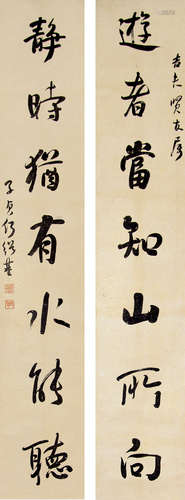 賢友屬
遊者當知山所向
靜時猶有水能聽
子貞何紹基